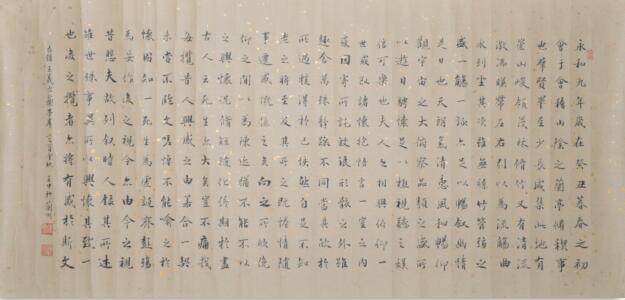 永和九年歲在癸丑暮春之初
會于會稽山陰之蘭亭脩禊事
也群賢畢至少長咸集此地有
崇山峻領茂林脩竹又有清流
激湍暎帶左右引以為流觴曲
水列坐其次雖無絲竹管弦之
盛一觴一詠亦足以暢叙幽情
是日也天朗氣清惠風和暢仰
觀宇宙之大俯察品類之盛所
以遊目騁懷足以極視聽之娛
信可樂也夫人之相與俯仰一
世或取諸懷抱悟言一室之內
或因寄所託放浪形骸之外雖
趣舍萬殊靜躁不同當其欣於
所遇暫得於己快然自足不知
老之將至及其所之既惓情隨
事遷感慨係之矣向之所欣俛
仰之閒以為陳迹猶不能不以
之興懷況脩短隨化終期於盡
古人云死生亦大矣豈不痛哉
每攬昔人興感之由若合一契
未嘗不臨文嗟悼不能喻之於
懷固知一死生為虛誕齊彭殤
為妄作後之視今亦由今之視
昔悲夫故列叙時人錄其所述
雖世殊事異所以興懷其致一
也後之攬者亦將有感於斯文
右錄王羲之蘭亭序